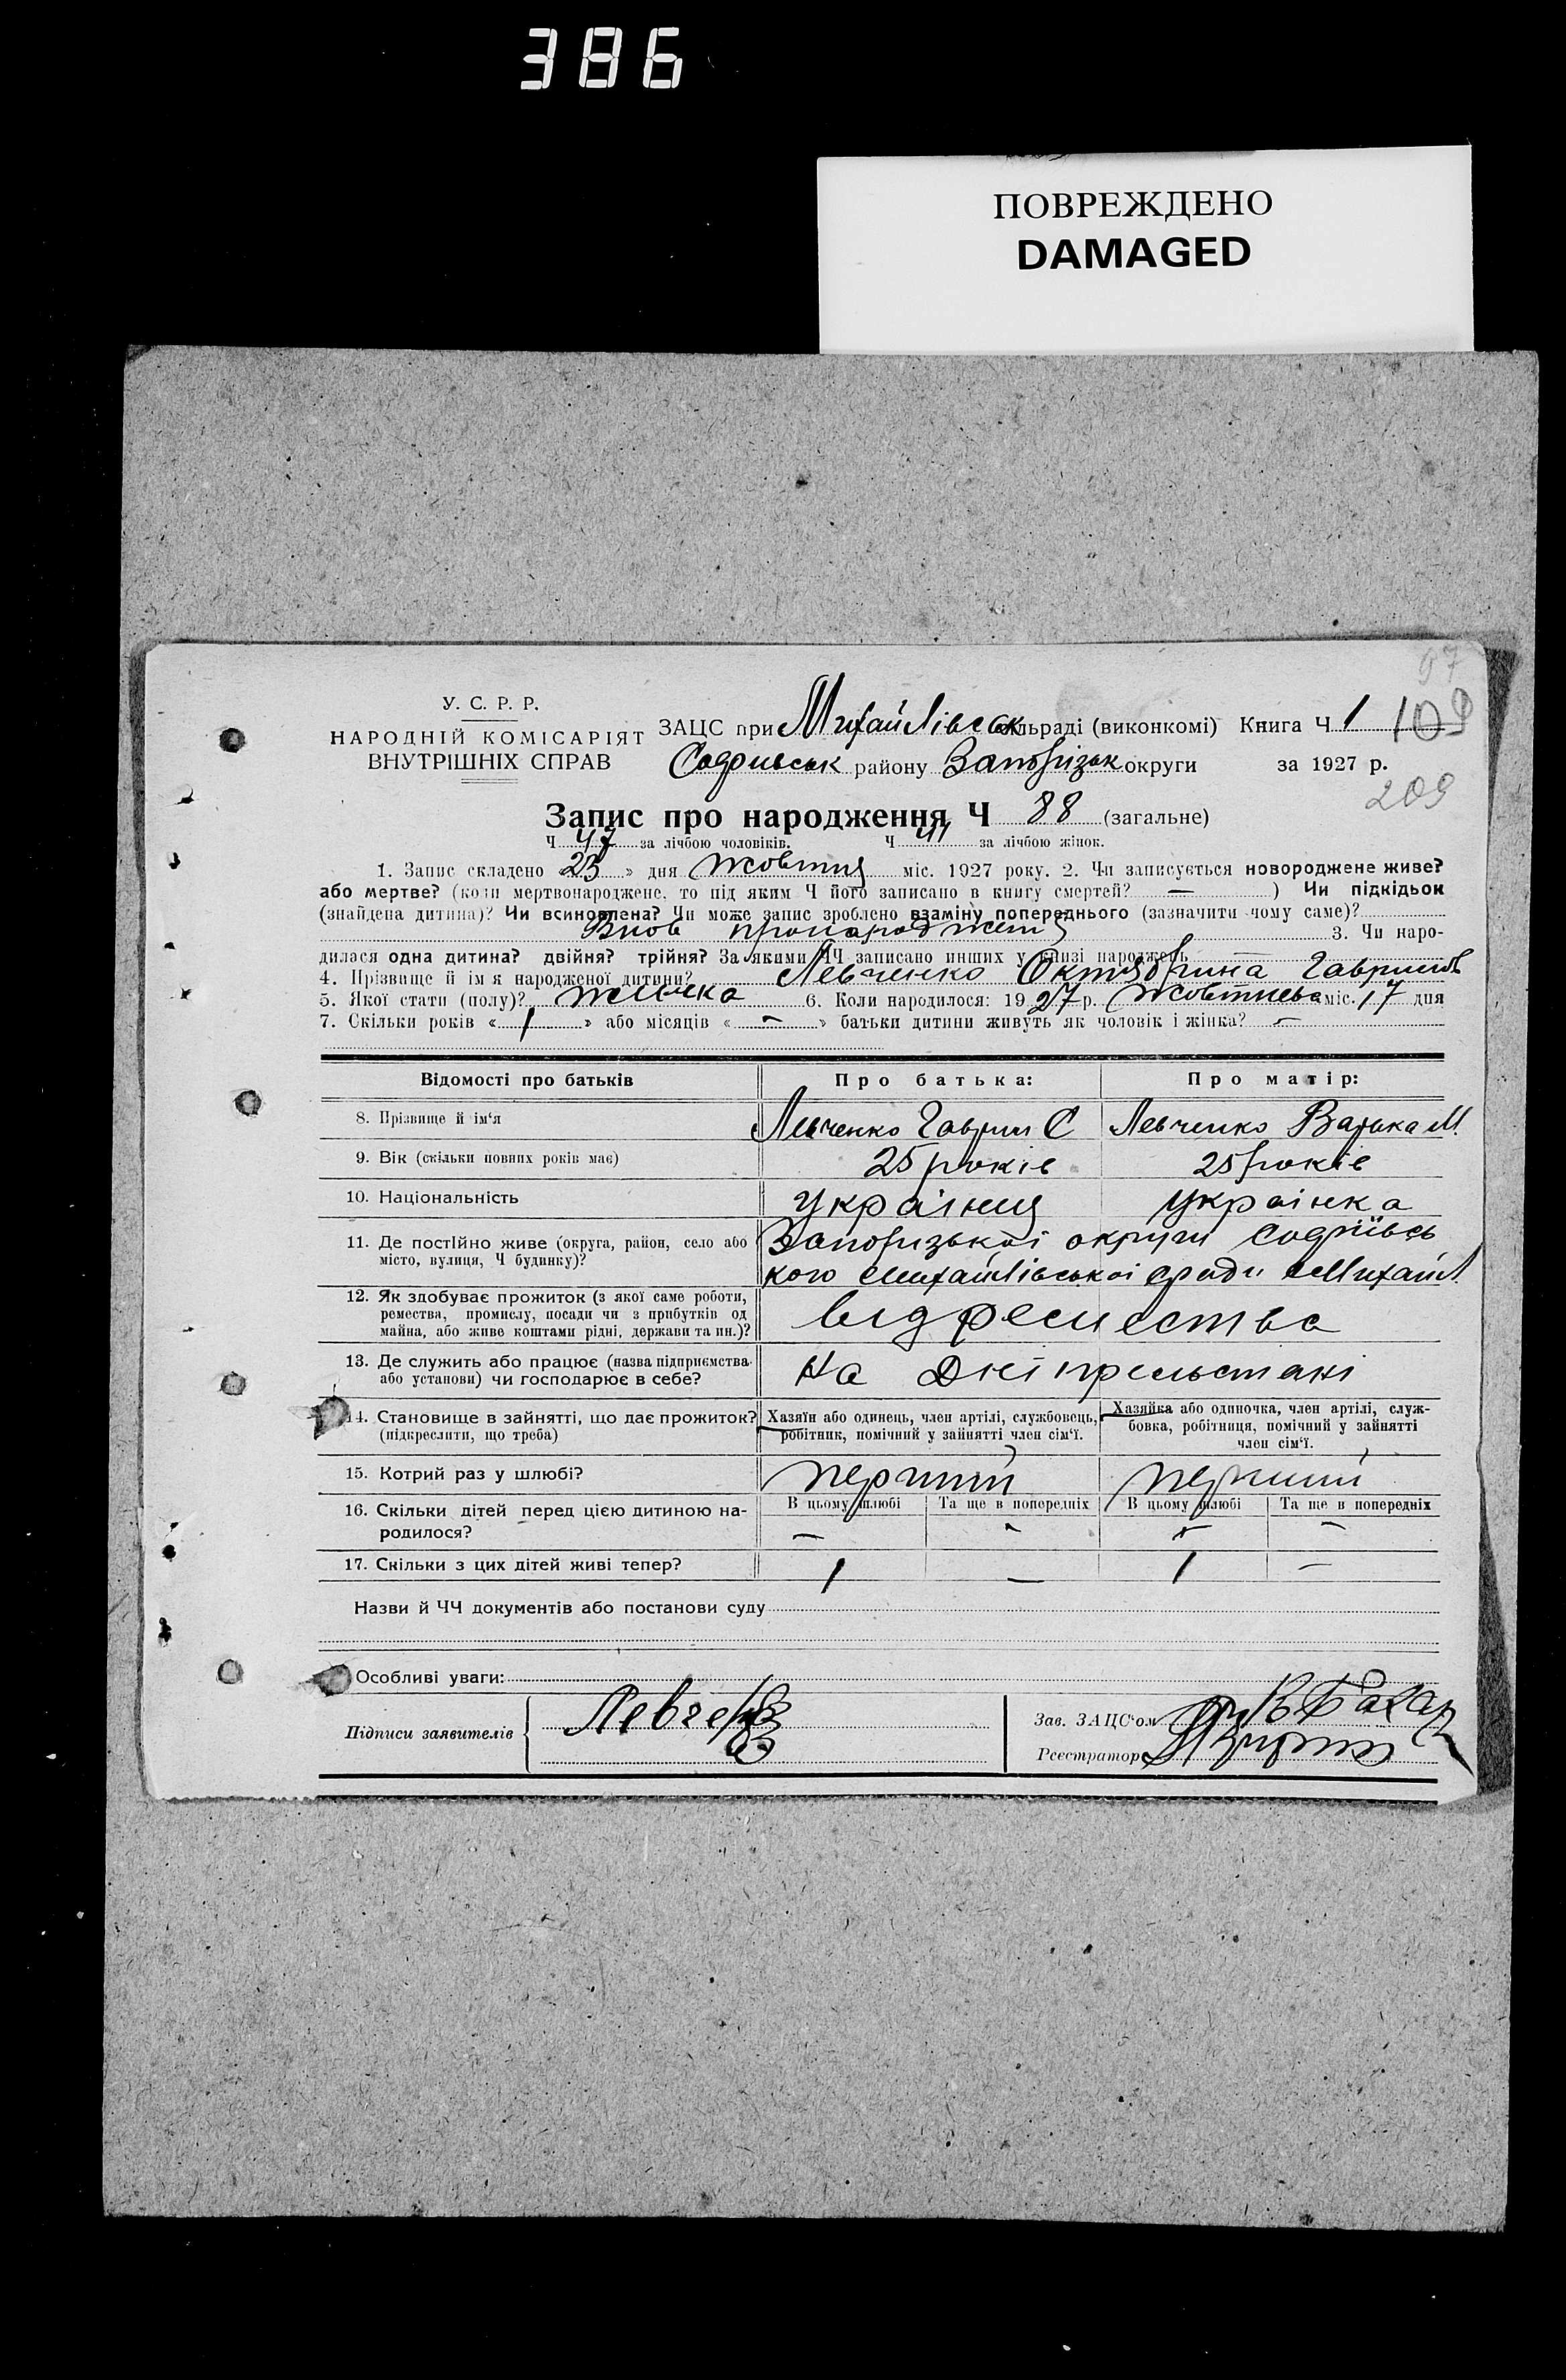 386
ПОВРЕЖДЕНО
DAMAGED
97
У. С. Р. Р.
НАРОДНІЙ КОМІСАРІЯТ
ВНУТРІШНІХ СПРАВ
ЗАЦС при Михайлівськ сільраді (виконкомі) Книга Ч 1 109
району Запорізьк округи за 1927 р.
209
Запис про народження Ч 88 (загальне)
Ч 47 за лічбою чоловіків. Ч 41 за лічбою жінок.
1. Запис складено 23 » дня Жовтня міс. 1927 року. 2. Чи записується новороджене живе?
або мертве? (коли мертвонароджене, то під яким Ч його записано в книгу смертей? — ) Чи підкідьок
(знайдена дитина)? Чи всиновлена? Чи може запис зроблено взаміну попереднього (зазначити чому саме)?
Вновь 3. Чи наро-
дилася одна дитина? двійня? трійня? За якими ЧЧ записано инших у книзі народжень
4. Прізвище й ім'я народженої дитини? Левченко Октябрина Гаврилов
5. Якої стати (полу)? 6. Коли народилося: 1927 р. Жовтнева міс. 17 дня
7. Скільки років « 1 » або місяців « — » батьки дитини живуть як чоловік і жінка? —
Відомості про батьків Про батька: Про матір:
8. Прізвище й ім'я Левченко Гаврил С Левченко Варька М.
9. Вік (скільки повних років має) 25 років 25 років
10. Національність українця українка
11. Де постійно живе (округа, район, село або Запоризької округи
місто, вулиця, Ч будинку)? кого Михайлівської сради Михайл
12. Як здобуває прожиток (з якої саме роботи,
ремества, промислу, посади чи з прибутків од від ремества
майна, або живе коштами рідні, держави та ин.)?
13. Де служить або працює (назва підприємства На
або установи) чи господарює в себе?
14. Становище в зайнятті, що дає прожиток? Хазяїн або одинець, член артілі, службовець, Хазяйка або одиночка, член артілі, служ-
(підкреслити, що треба) робітник, помічний у зайнятті член сім'ї. бовка, робітниця, помічний у зайнятті
член сім'ї.
15. Котрий раз у шлюбі? перший перший
16. Скільки дітей перед цією дитиною на- В цьому шлюбі Та ще в попередніх В цьому шлюбі Та ще в попередніх
родилося? — — — —
17. Скільки з цих дітей живі тепер? 1 — 1 —
Назви й ЧЧ документів або постанови суду
Особливі уваги:
Підписи заявителів Зав. ЗАЦС'ом
Реєстратор